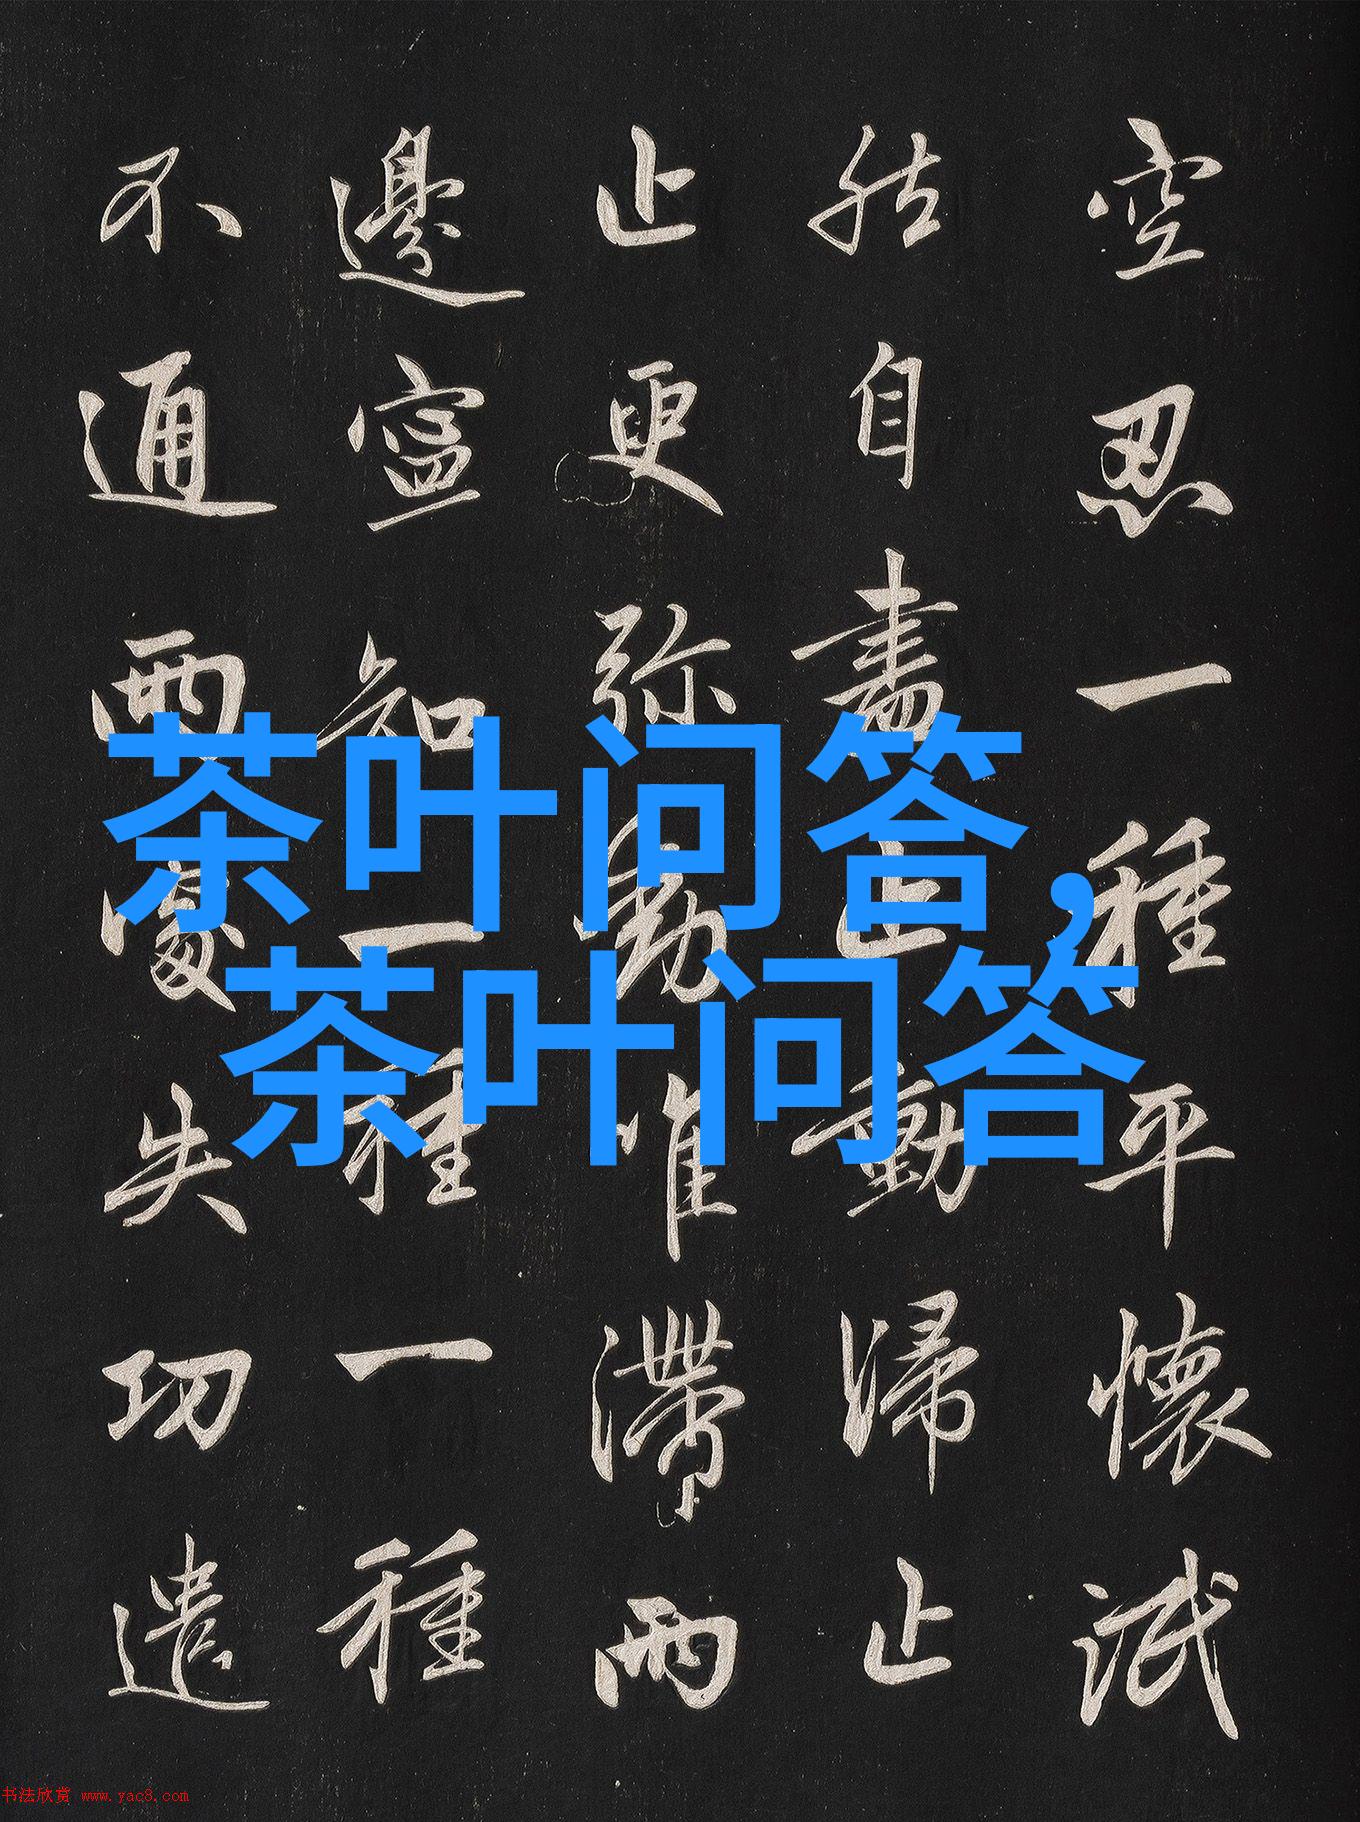 空忍一種平懷泯
然自盡止動歸止
止更弥動唯滯兩
邊寧知一種一種
不通兩處失功遣
茶叶问答,
茶叶问答
书法欣赏 www.yac8.com